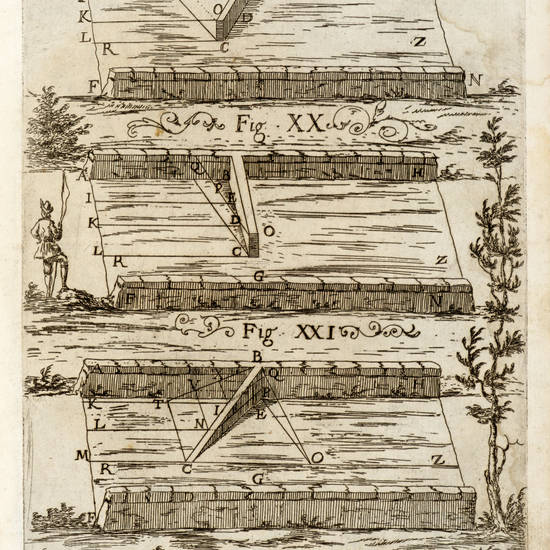 K O D
L R C Z
F N
Fig. XX
A Q B H
I P E
K D O
L R C Z
G
F N
Fig. XXI
B
A Q H
K T I P
L N E
M R C O Z
G
F